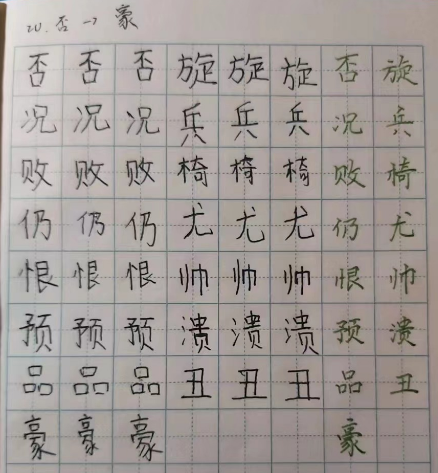 20. 否 → 豪
否 否 否 旋 旋 旋 否 旋
况 况 况 兵 兵 兵 况 兵
败 败 败 椅 椅 椅 败 椅
仍 仍 仍 尤 尤 尤 仍 尤
恨 恨 恨 帅 帅 帅 恨 帅
预 预 预 溃 溃 溃 预 溃
品 品 品 丑 丑 丑 品 丑
豪 豪 豪 豪